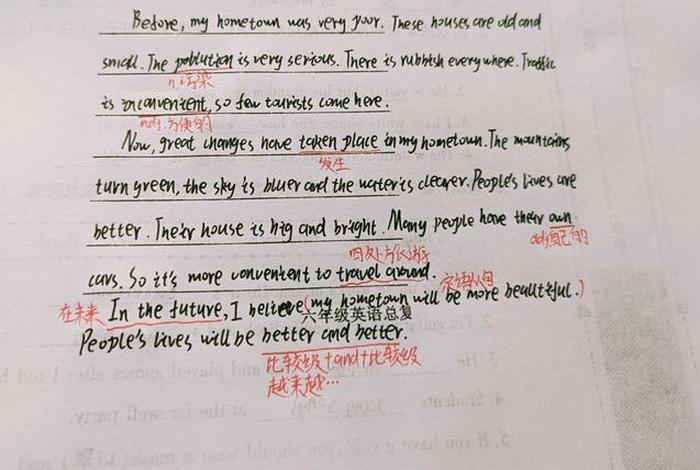 Before, my hometown was very poor. These houses are old and
small. The pollution is very serious. There is rubbish everywhere. Traffic
n.污染
is inconvenient, so few tourists come here.
adj.方便的
Now, great changes have taken place in my hometown. The mountains
发生
turn green, the sky is bluer and the water is clearer. People's lives are
better. Their house is big and bright. Many people have their own
四处旅游
adj.自己的
cars. So it's more convenient to travel around.
定语从句
在未来 In the future, I believe (my hometown will be more beautiful.)
六年级英语总复
People's lives will be better and better.
比较级+and+比较级
越来越…
3. He and played games after I did h
4. Students at the farewell party.
5. If you have a cold, you should wear a mask and